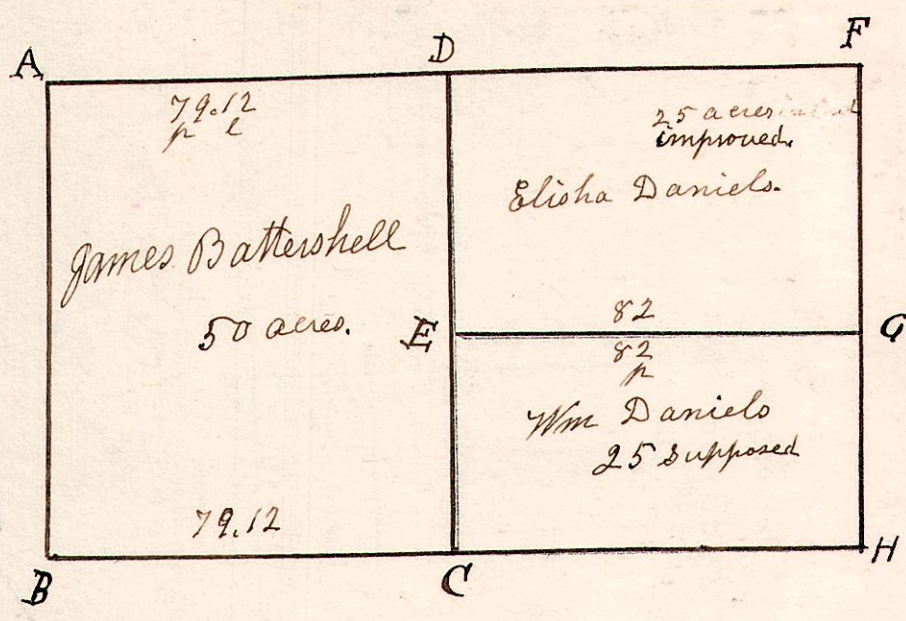 A
D
F
79.12
p l
25 acres
improved.
Elisha Daniels.
James Battershell
50 acres.
E
82
G
82
p
Wm Daniels
25 Supposed
79.12
B
C
H